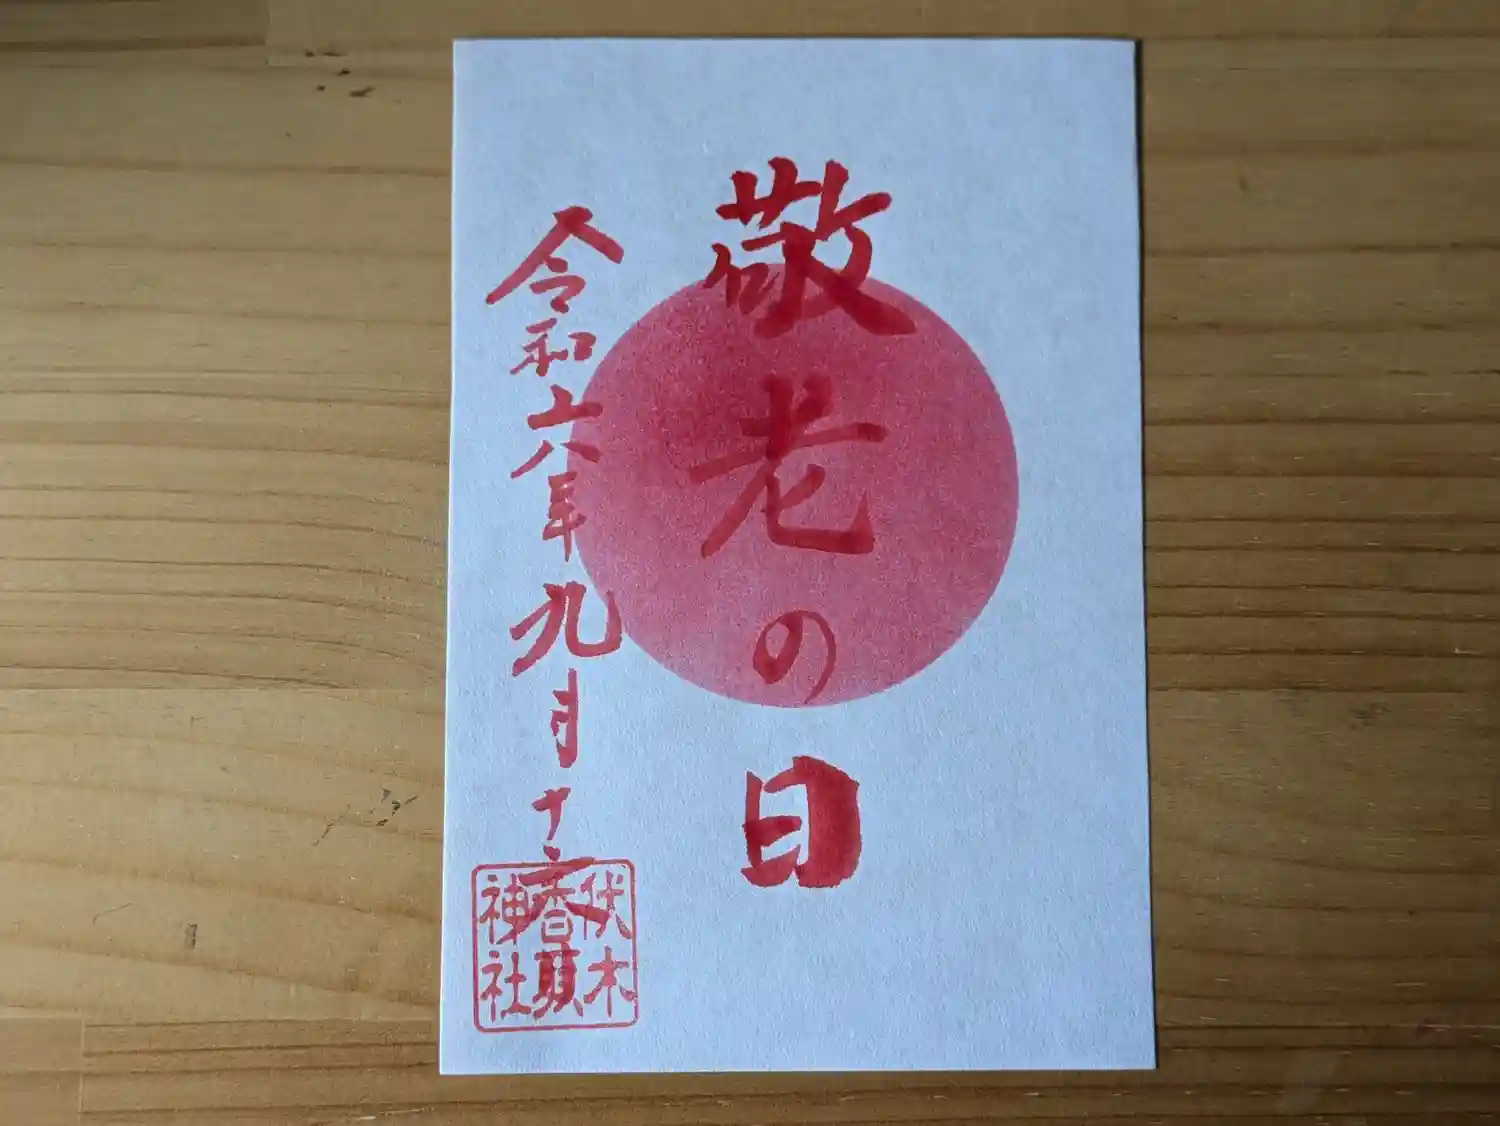 敬老の日
令和六年九月十六日
伏木
香取
神社